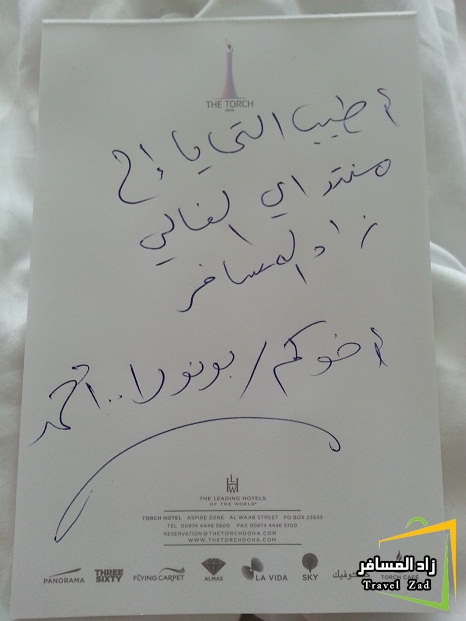 THE TORCH
DOHA
أطيب التحايا إلى
منتداي الغالي
زاد المسافر
أخوكم / بونورا.. أحمد
THE LEADING HOTELS
OF THE WORLD
TORCH HOTEL ASPIRE ZONE AL WAAB STREET PO BOX 23833
TEL 00974 4446 5600 FAX 00974 4446 5700
RESERVATION@THETORCHDOHA.COM
WWW.THETORCHDOHA.COM
PANORAMA THREE SIXTY FLYING CARPET ALMAS LA VIDA SKY TORCH CAFÉ
زاد المسافر
Travel Zad